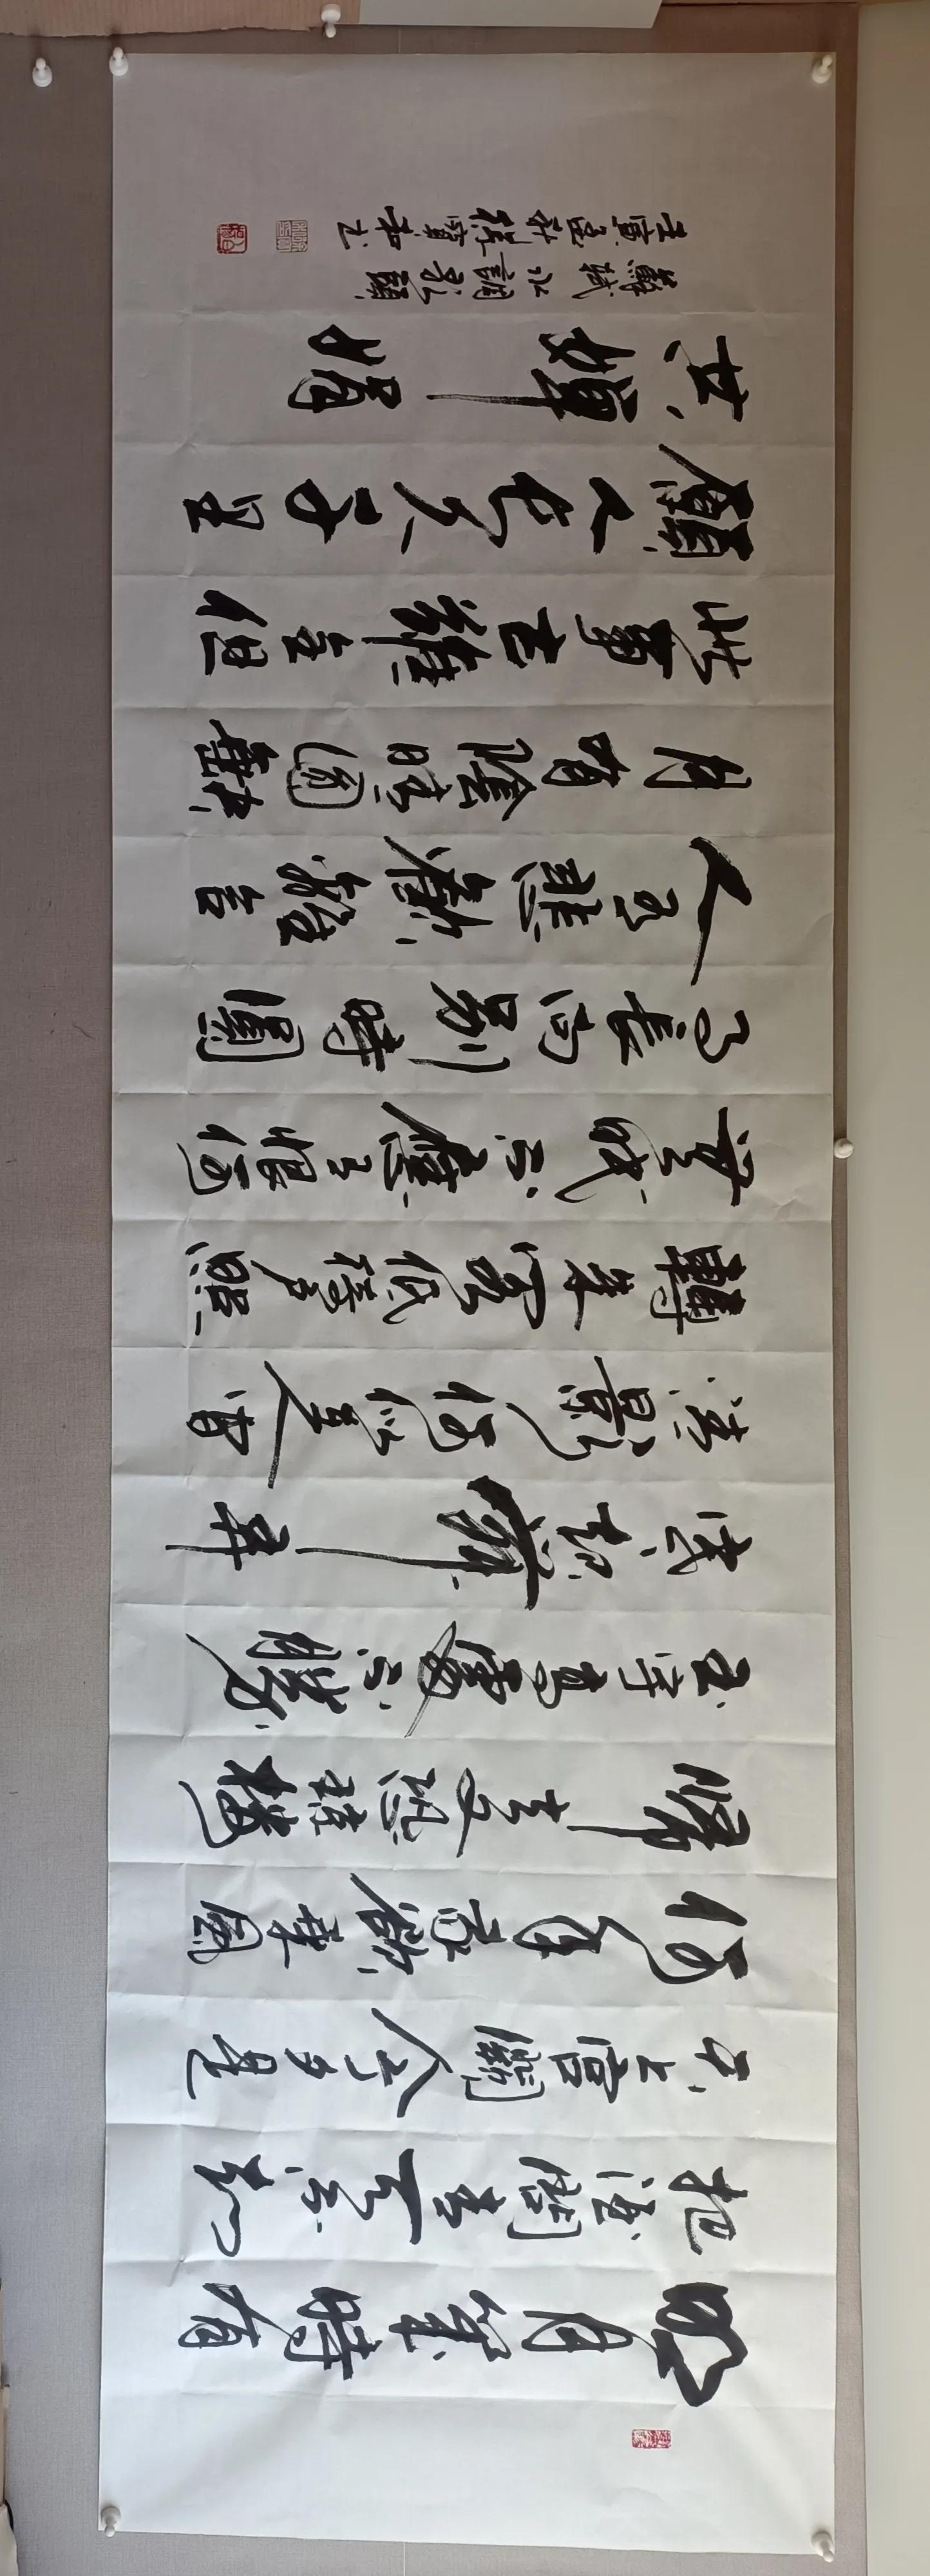 明月幾時有
把酒問青天不知
天上宮闕今夕是
何年我欲乘風
歸去又恐瓊樓
玉宇高處不勝
寒起舞弄
清影何似在人間
轉朱閣低綺戶照
無眠不應有恨何
事長向別時圓
人有悲歡離合
月有陰晴圓缺
此事古難全但
願人長久千里
共嬋娟
蘇軾水調歌頭
壬寅孟秋